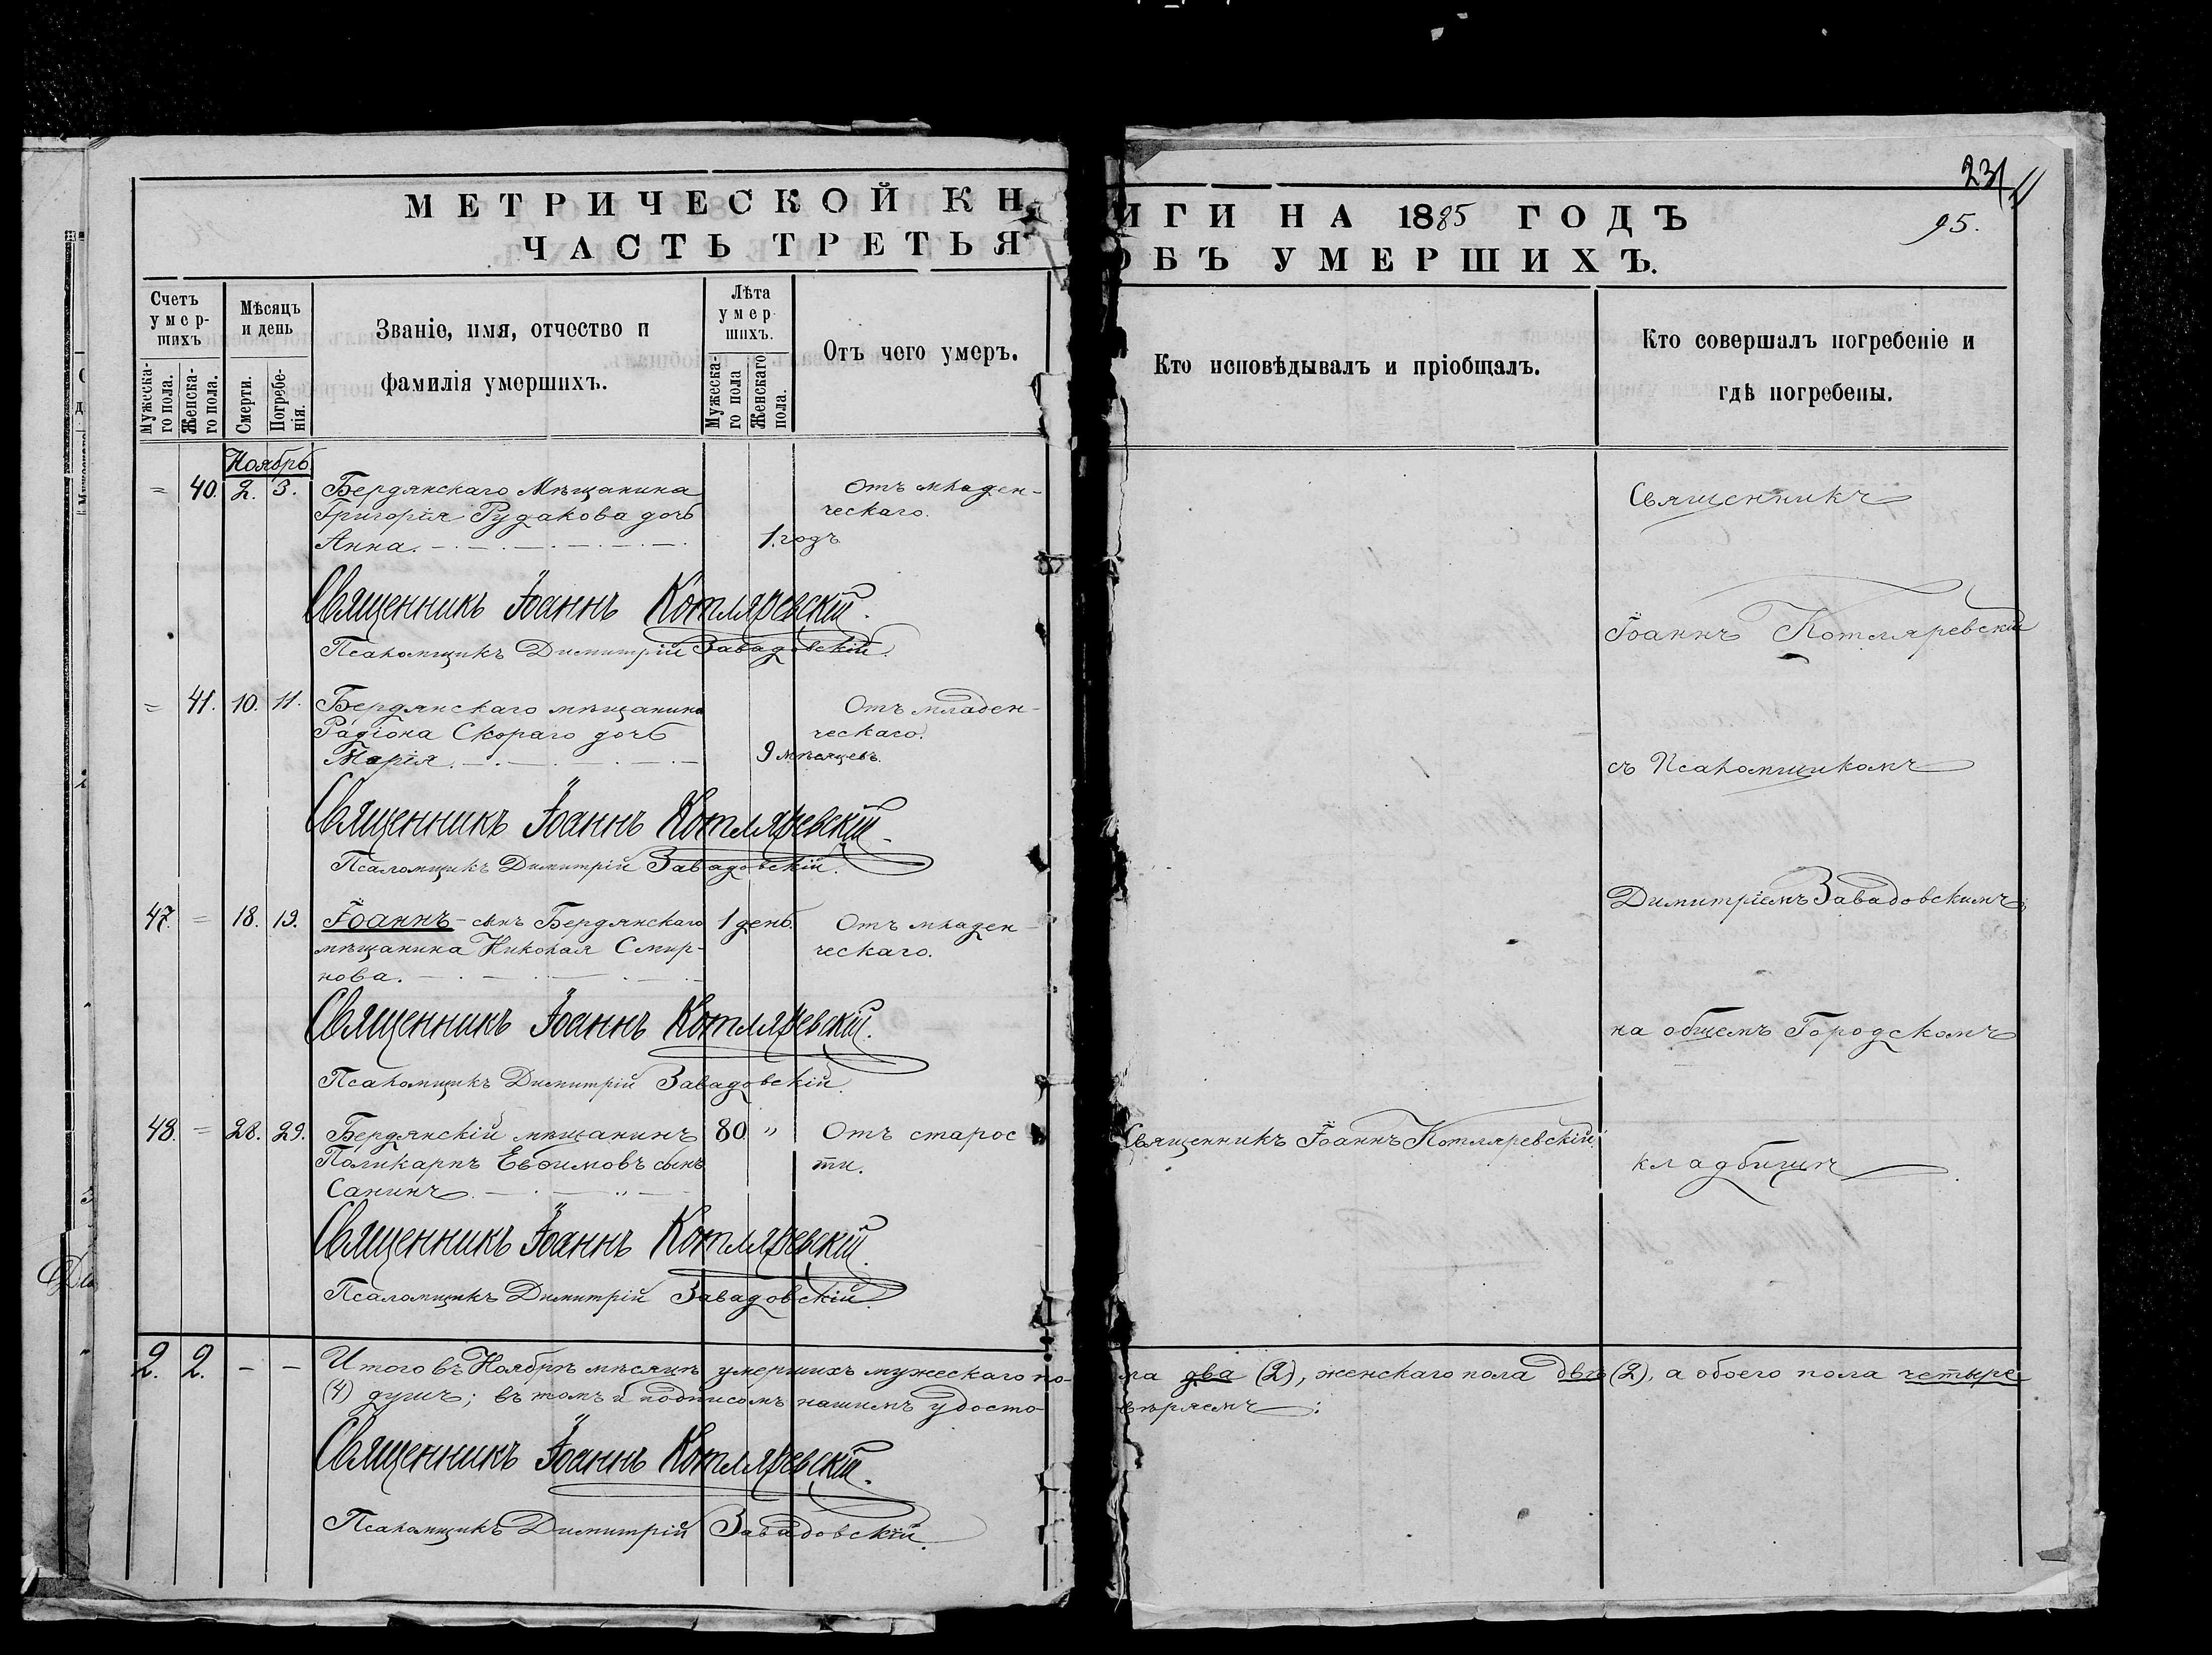 231
95.
МЕТРИЧЕСКОЙ КНИГИ НА 1885 ГОДЪ
ЧАСТЬ ТРЕТЬЯ ОБЪ УМЕРШИХЪ.
Счетъ умер-шихъ
Мужеска-го пола.
Женска-го пола.
Мѣсяцъ и день
Смерти.
Погребе-нія.
Званіе, имя, отчество и
фамилія умершихъ.
Лѣта умер-шихъ.
Мужеска-го пола
Женскаго пола.
Отъ чего умеръ.
Кто исповѣдывалъ и пріобщалъ.
Кто совершалъ погребеніе и
гдѣ погребены.
Ноябрь
= 40. 2. 3. Бердянскаго Мѣщанина Отъ младен-
Григорія Рудакова дочь ческаго.
Анна. 1. годъ
Священникъ Іоаннъ Котляревскій.
Псаломщикъ Димитрій Завадовскій.
= 41. 10. 11. Бердянскаго мѣщанина Отъ младен-
Радіона Скораго дочь ческаго.
Марія. 9 мѣсяцевъ.
Священникъ Іоаннъ Котляревскій.
Псаломщикъ Димитрій Завадовскій.
47. = 18. 19. Іоаннъ - сынъ Бердянскаго 1 день. Отъ младен-
мѣщанина Николая Смир- ческаго.
нова.
Священникъ Іоаннъ Котляревскій.
Псаломщикъ Димитрій Завадовскій.
48. = 28. 29. Бердянскій мѣщанинъ 80 " Отъ старос Священникъ Іоаннъ Котляревскій.
Поликарпъ Евѳимовъ сынъ ти.
Санинъ.
Священникъ Іоаннъ Котляревскій.
Псаломщикъ Димитрій Завадовскій.
Священникъ
Іоаннъ Котляревскій
съ Псаломщикомъ
Димитріемъ Завадовскимъ
на общемъ Городскомъ
кладбищѣ.
2. 2. - - Итого въ Ноябрѣ мѣсяцѣ умершихъ мужескаго по-ла два (2), женскаго пола двѣ (2), а обоего пола четыре
(4) душъ; въ томъ и подписомъ нашимъ удосто-вѣряемъ:
Священникъ Іоаннъ Котляревскій.
Псаломщикъ Димитрій Завадовскій.